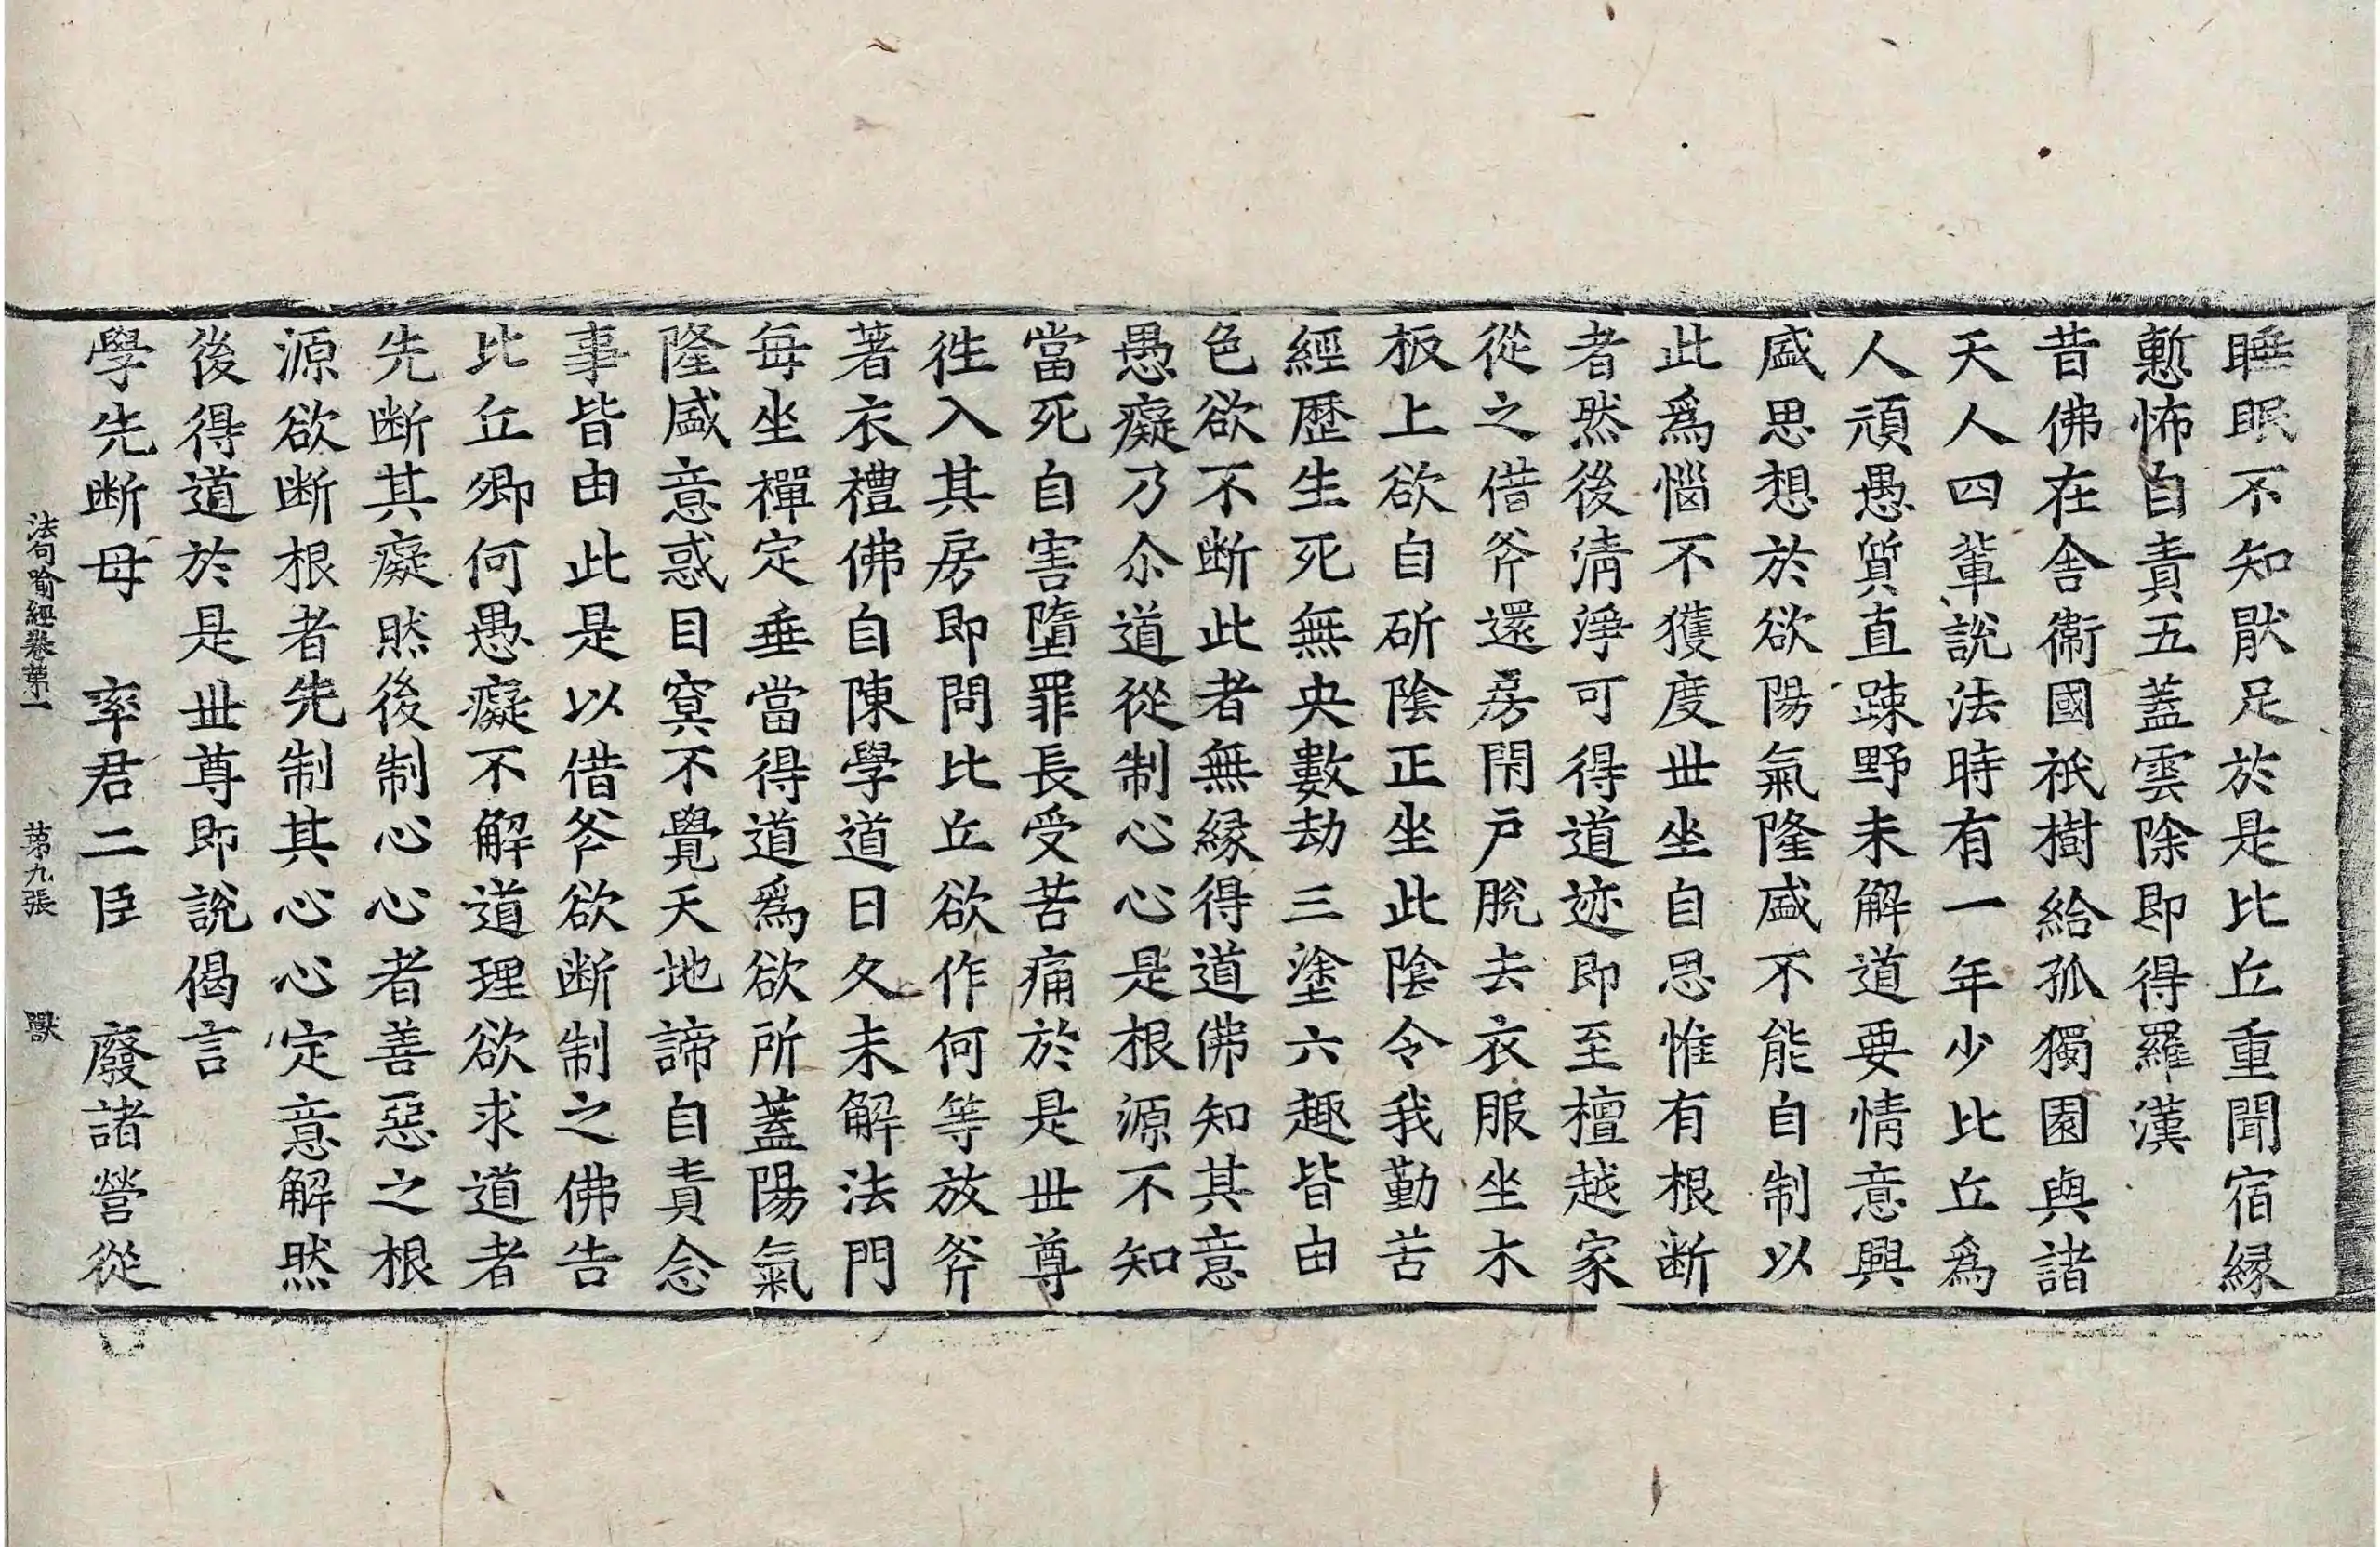 睡眠不知猒足於是比丘重聞宿縁
慙怖自責五蓋雲除即得羅漢
昔佛在舎衛國祇樹給孤獨園與諸
天人四輩說法時有一年少比丘爲
人頑愚質直踈野未解道要情意興
盛思想於欲陽氣隆盛不能自制以
此爲惱不獲度丗坐自思惟有根断
者然後清淨可得道迹即至檀越家
從之借斧還房閇戸脫去衣服坐木
板上欲自斫陰正坐此陰令我勤苦
經歷生死無央數劫三塗六趣皆由
色欲不断此者無縁得道佛知其意
愚癡乃尒道從制心心是根源不知
當死自害墮罪長受苦痛於是丗尊
徃入其房即問比丘欲作何等放斧
著衣禮佛自陳學道日久未解法門
每坐禪定垂當得道爲欲所蓋陽氣
隆盛意惑目冥不覺天地諦自責念
事皆由此是以借斧欲断制之佛告
比丘卿何愚癡不解道理欲求道者
先断其癡然後制心心者善惡之根
源欲断根者先制其心心定意解然
後得道於是丗尊即說偈言
學先断母　率君二臣　廢諸營從
法句喻經卷第一　第九張　獸